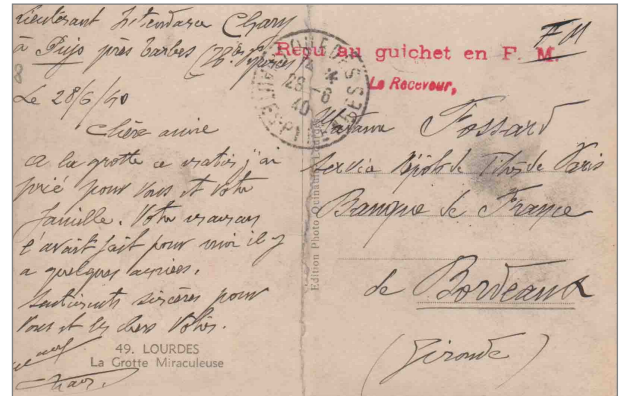 Lieutenant Intendance Chary
à Pujo près Tarbes (Htes Pyrénées)
Le 28/6/40
Chère amie
a la grotte ce matin j'ai
prié pour vous et votre
famille. Votre maman
l'avait fait pour moi il y
a quelques années.
Sentiments sincères pour
vous et les chers vôtres.
49. LOURDES
La Grotte Miraculeuse
FM
Reçu au guichet en F. M.
Le Receveur,
LOURDES
28 -6
40
Madame Fossard
Service Dépôts de Titres de Paris
Banque de France
de Bordeaux
(Gironde)
Edition Photo